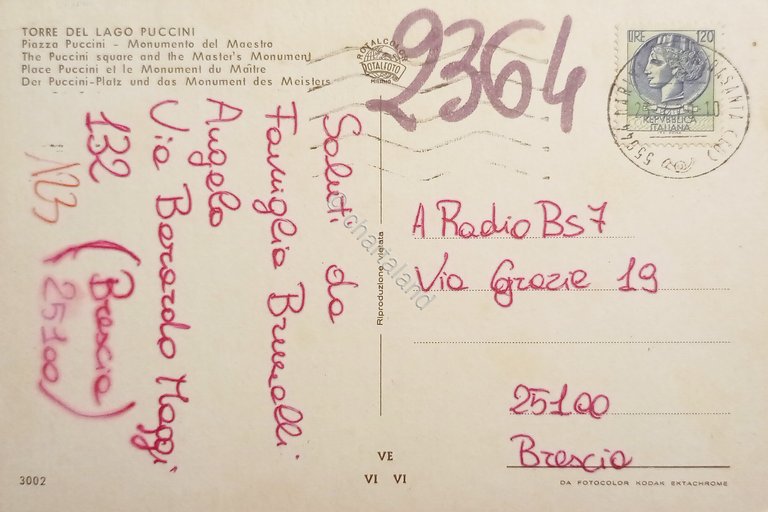 TORRE DEL LAGO PUCCINI
Piazza Puccini - Monumento del Maestro
The Puccini square and the Master's Monument
Place Puccini et le Monument du Maître
Der Puccini-Platz und das Monument des Meisters
ROTALCOLOR
ROTALFOTO
MILANO
2364
LIRE 120
REPVBBLICA
ITALIANA
Saluti da
Famiglia Brunelli
Angelo
Via Berardo Maggi
132 (Brescia
25100)
N23
Riproduzione vietata
chartaland
A Radio Bs7
Via Grazie 19
25100
Brescia
VE
VI VI
3002
DA FOTOCOLOR KODAK EKTACHROME